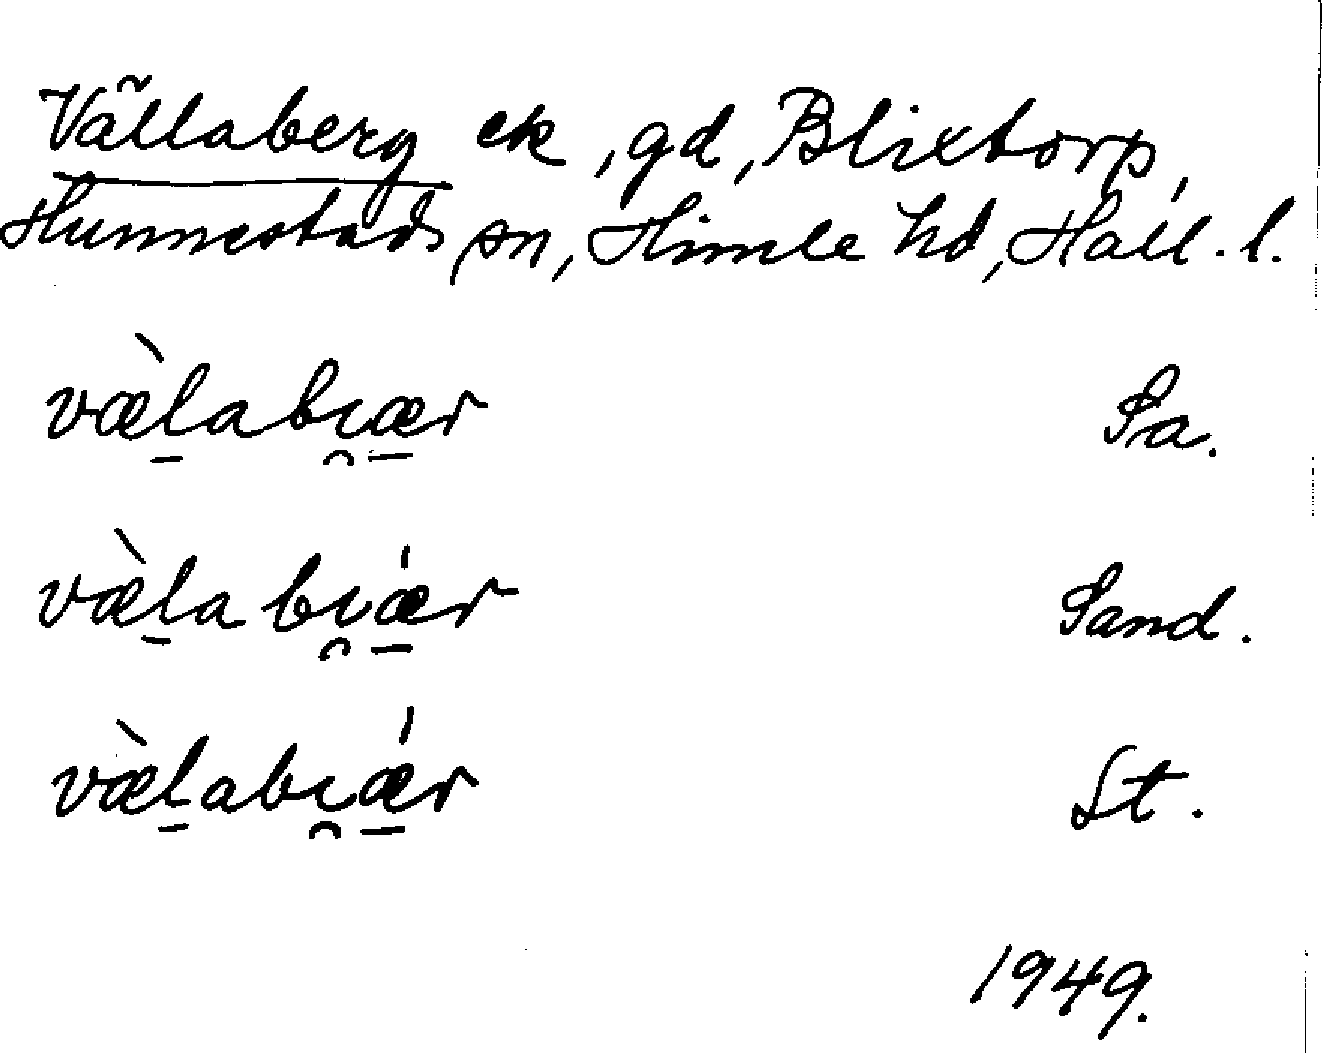 Vällaberg ek, gd, Blixtorp,
Hunnestads sn, Himle hd, Hall. l.
væ̀l̠abı̯æ̠r Sa.
væ̀l̠abı̯ǽ̠r Sand.
væ̀l̠abı̯ǽ̠r St.
1949.